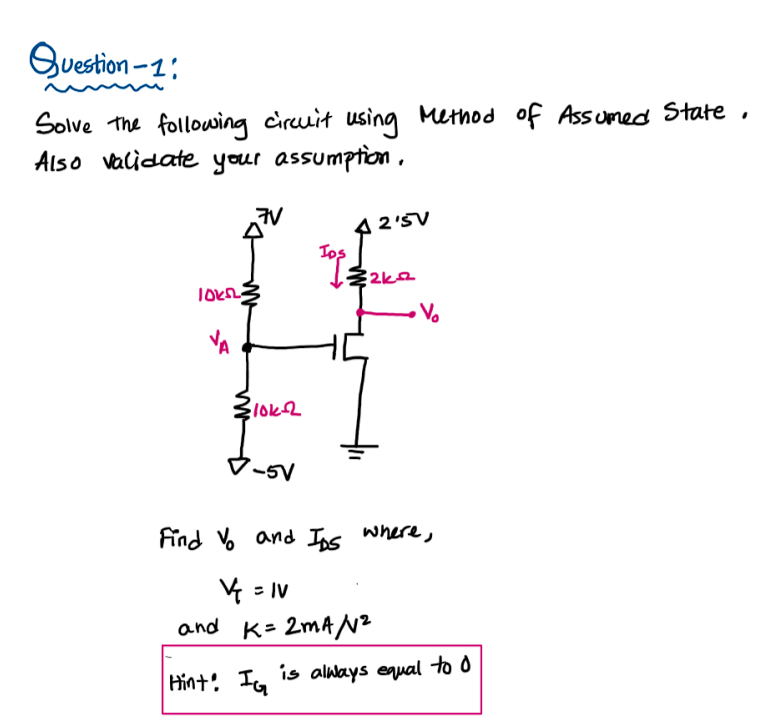 Question-1:
Solve the following circuit using Method of Assumed State.
Also validate your assumption.
7V
2.5V
IDS
2kΩ
10kΩ
Vo
VA
10kΩ
-5V
Find Vo and IDS where,
VT = 1V
and K = 2mA/V²
Hint: IG is always equal to 0